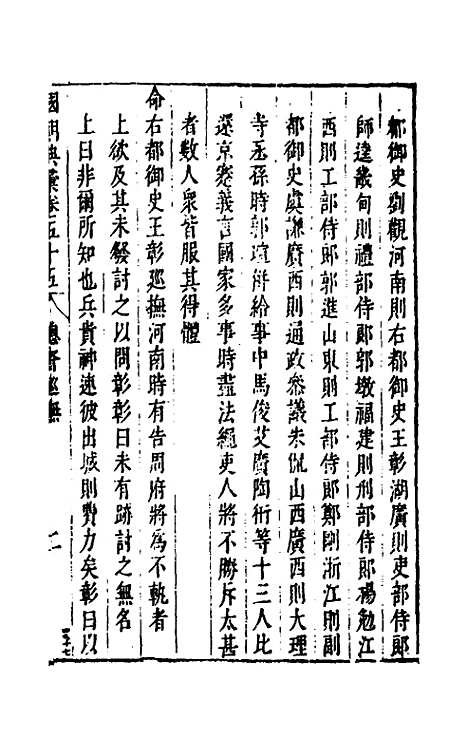 都御史劉觀河南則右都御史王彰湖廣則吏部侍郎
師逵畿甸則禮部侍郎郭墩福建則刑部侍郎楊勉江
西則工部侍郎郭進山東則工部侍郎鄭剛浙江則副
都御史虞謙廣西則通政叅議朱侃山西廣西則大理
寺丞孫時郭瑄併給事中馬俊艾廣陶衎等十三人比
還京蹇義言國家多事時盡法繩吏人將不勝斥太甚
者數人衆皆服其得體
命右都御史王彰廵撫河南時有告周府將爲不軌者
上欲及其未發討之以問彰彰曰未有跡討之無名
上曰非爾所知也兵貴神速彼出城則費力矣彰曰以
國朝典彙卷五十五 總督廵撫